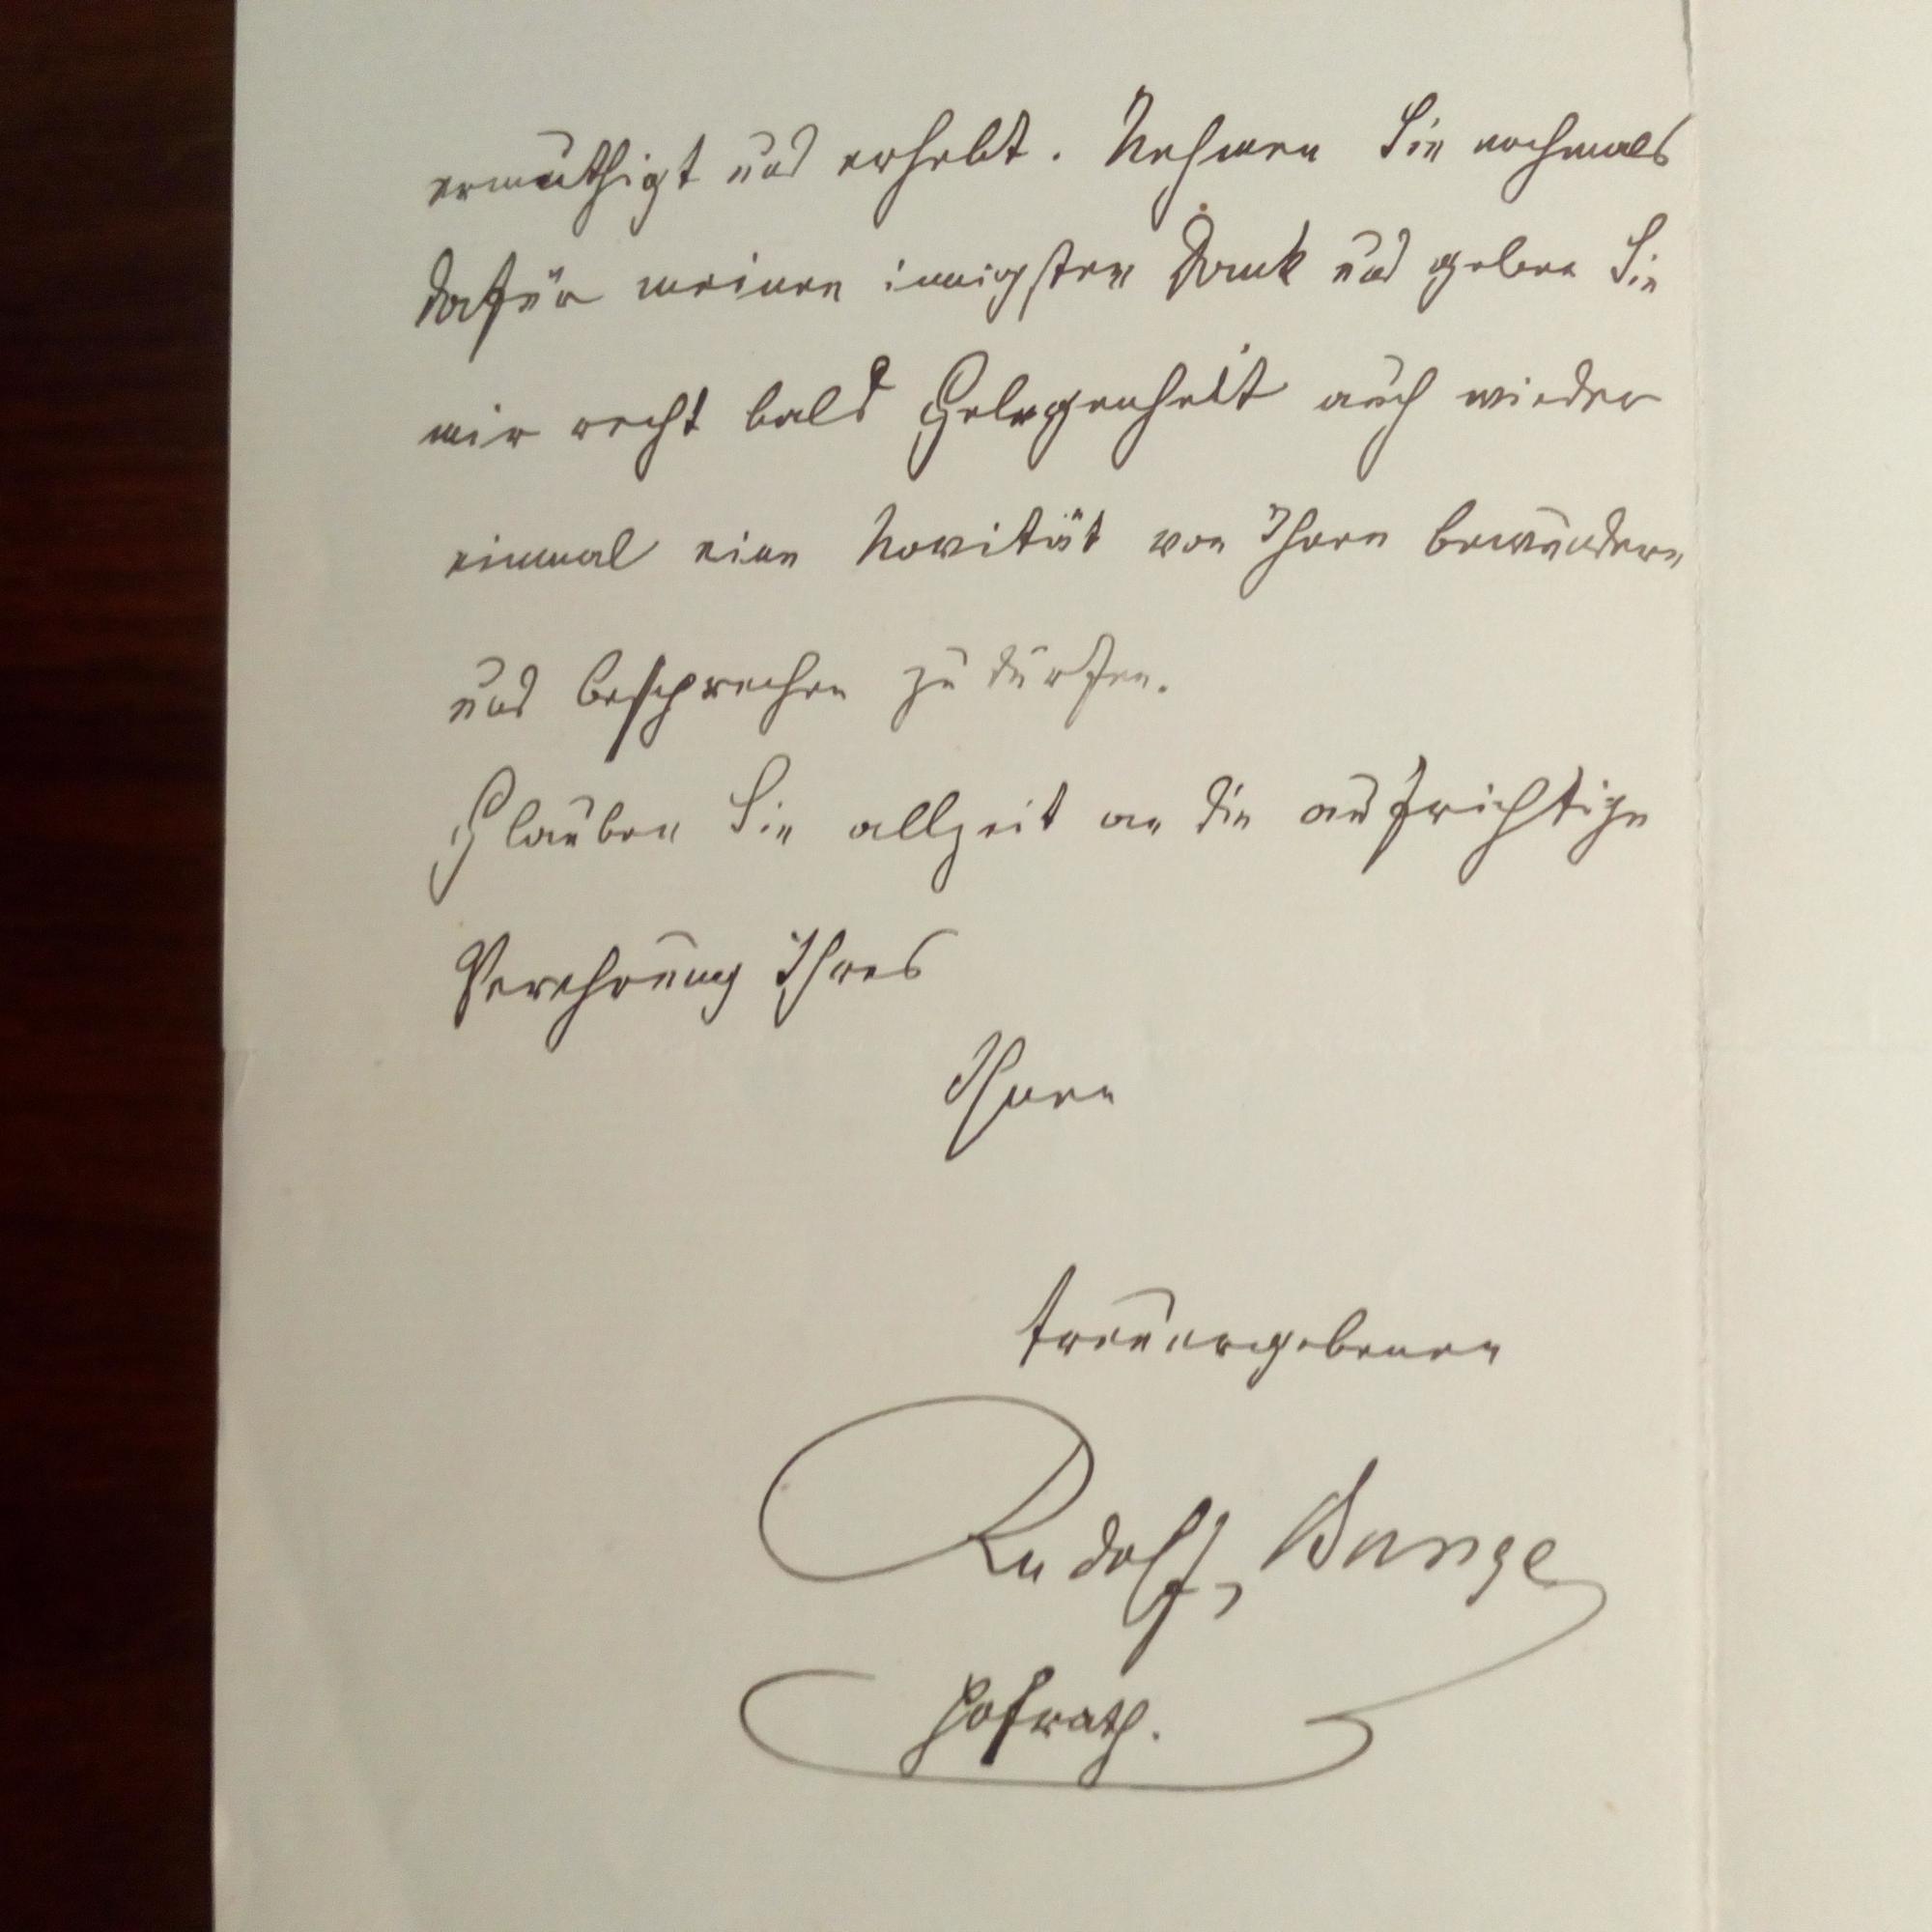 ermuthigt und erhebt. Nehmen Sie nochmals
dafür meinen innigsten Dank und geben Sie
mir recht bald Gelegenheit auch wieder
einmal eine Novität von Ihnen bewundern
und besprechen zu dürfen.
Glauben Sie allzeit an die aufrichtige
Verehrung Ihres
Ihnen
treuergebenen
Rudolf Bunge
Hofrath.